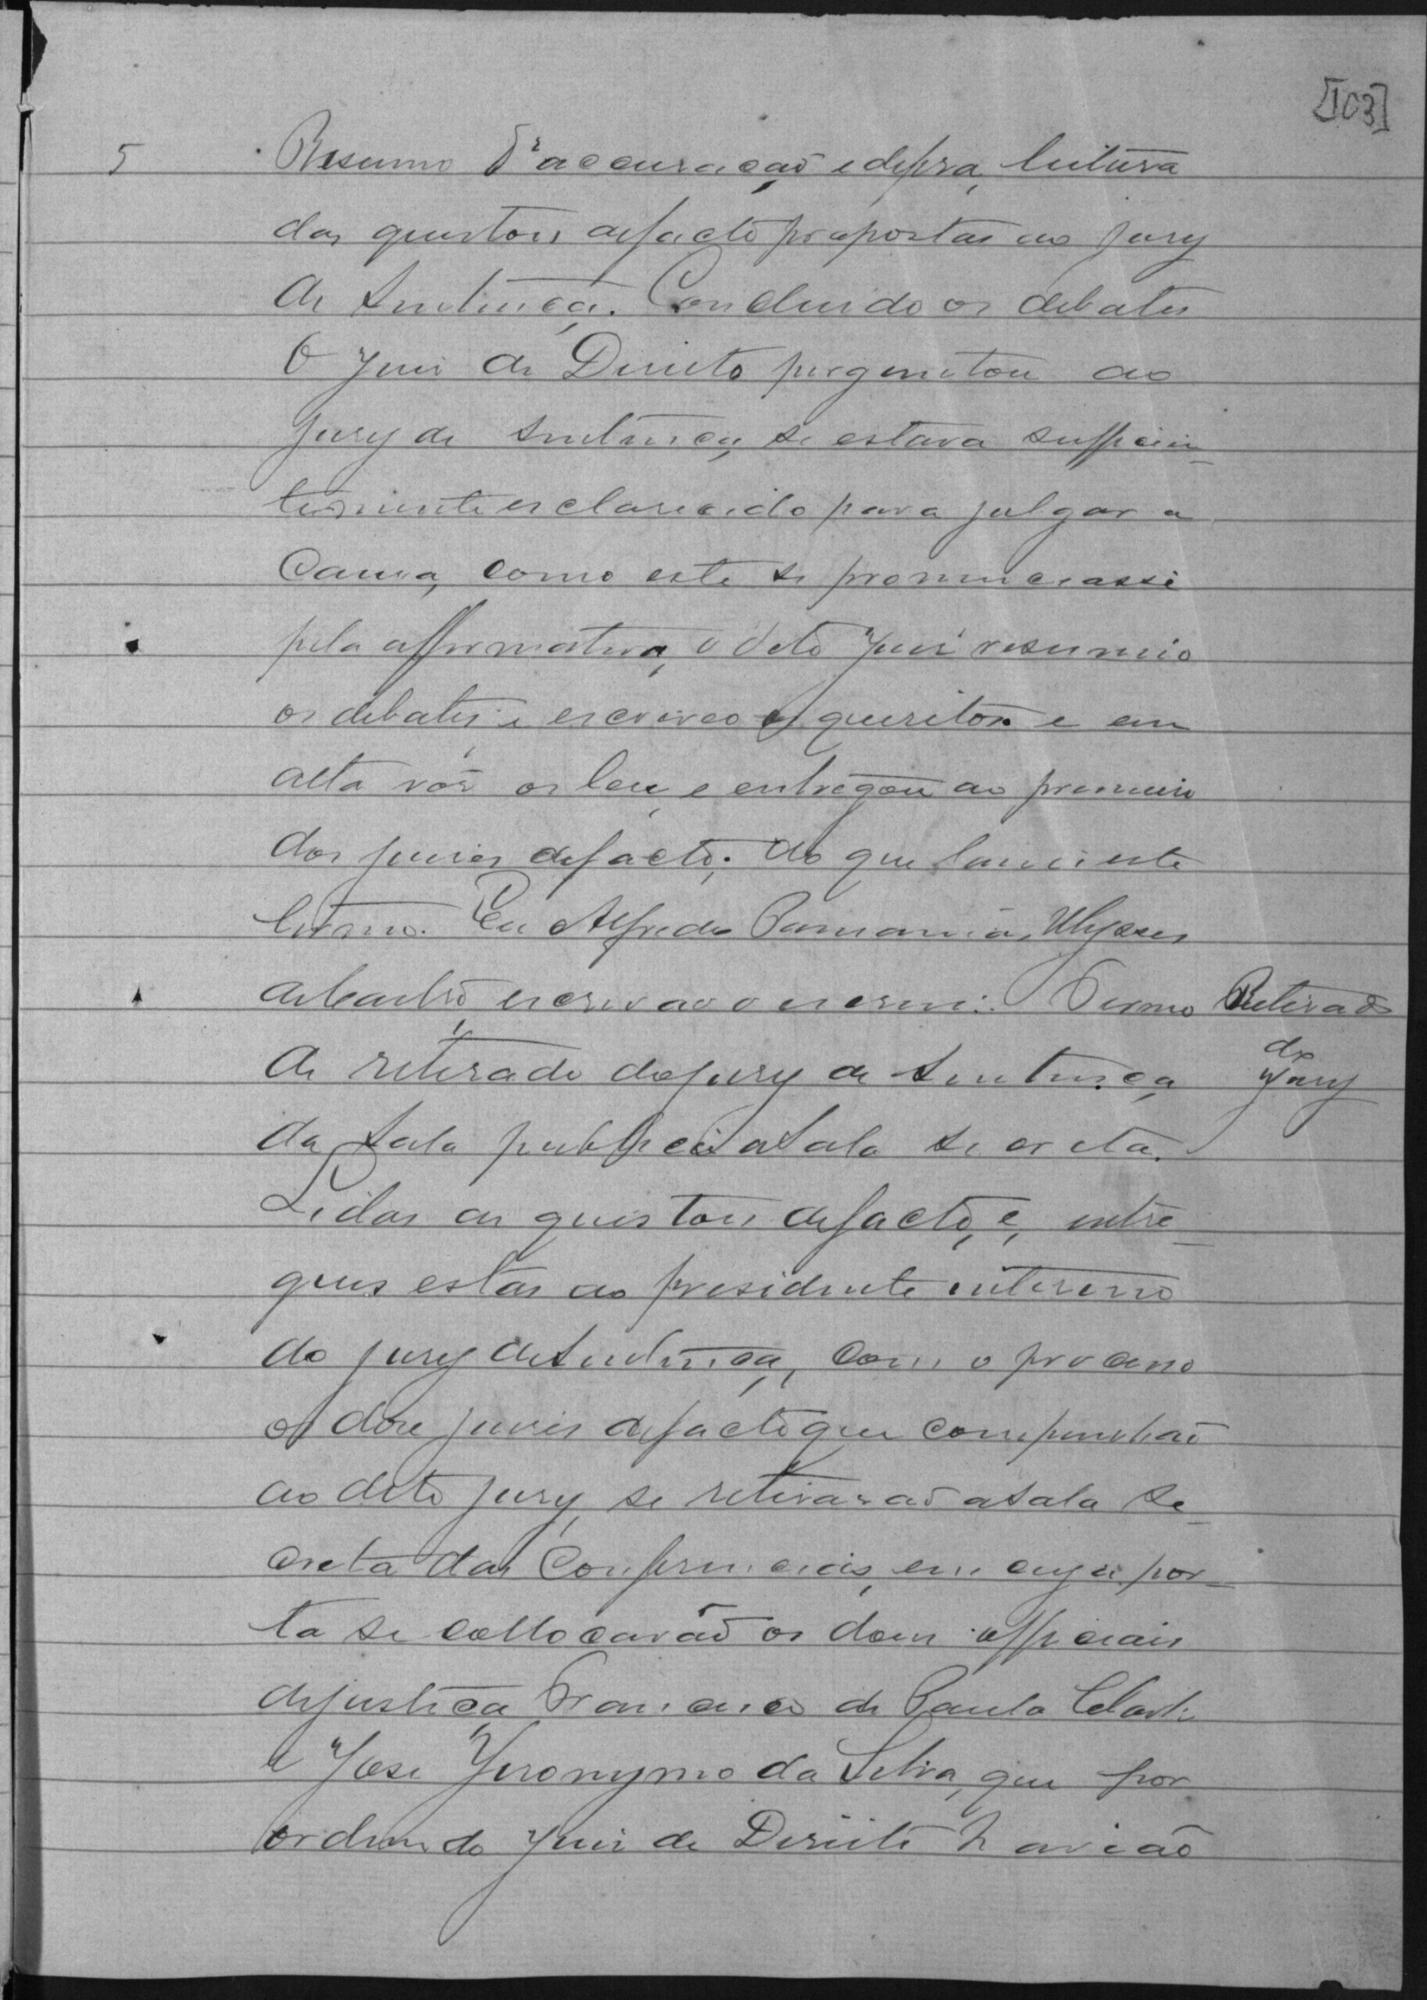 [103]
5
Resumo d'accusação e defesa, leitura
das questois de facto propostas ao jury
de sentença. Concluido os debates
O Juis de Direito perguntou ao
jury de sentença, se estava sufficien-
temente esclarecido para julgar a
Causa, como este se pronunciasse
pela affirmativa, o dito Juis resumio
os debates e escreveo os quesitos e em
alta vós os leu, e entregou ao primeiro
dos juises de facto; do que lavrei este
termo. Eu Alfredo Ulysses
de Castro, escrivão o escrevi. Termo
Retirada
do
Jury
de retirada do jury de sentença
da sala publica a sala secreta.
Lidas as questois de facto, e, entre-
gues estas ao presidente interino
do jury de sentença, com o processo
os dose juises de facto que compunhão
ao dito jury, se retirarão a sala se-
creta das Conferencias, em cuja por-
ta se collocarão os dous officiais
de justiça Francisco de Paula
e Jose Jeronymo da Silva, que por
ordem do Juis de Direito havião